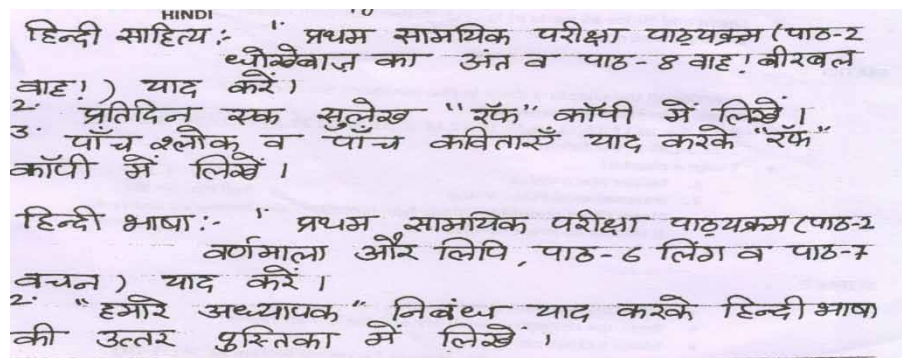 HINDI
हिन्दी साहित्य :- 1. प्रथम सामयिक परीक्षा पाठ्यक्रम (पाठ-2
धोखेबाज़ का अंत व पाठ-8 वाह! बीरबल
वाह!) याद करें।
2. प्रतिदिन एक सुलेख "रॅफ" कॉपी में लिखें।
3. पाँच श्लोक व पाँच कविताएँ याद करके "रॅफ"
कॉपी में लिखें ।
हिन्दी भाषा :- 1. प्रथम सामयिक परीक्षा पाठ्यक्रम (पाठ-2
वर्णमाला और लिपि, पाठ-6 लिंग व पाठ-7
वचन) याद करें ।
2. "हमारे अध्यापक" निबंध याद करके हिन्दी भाषा
की उत्तर पुस्तिका में लिखें ।